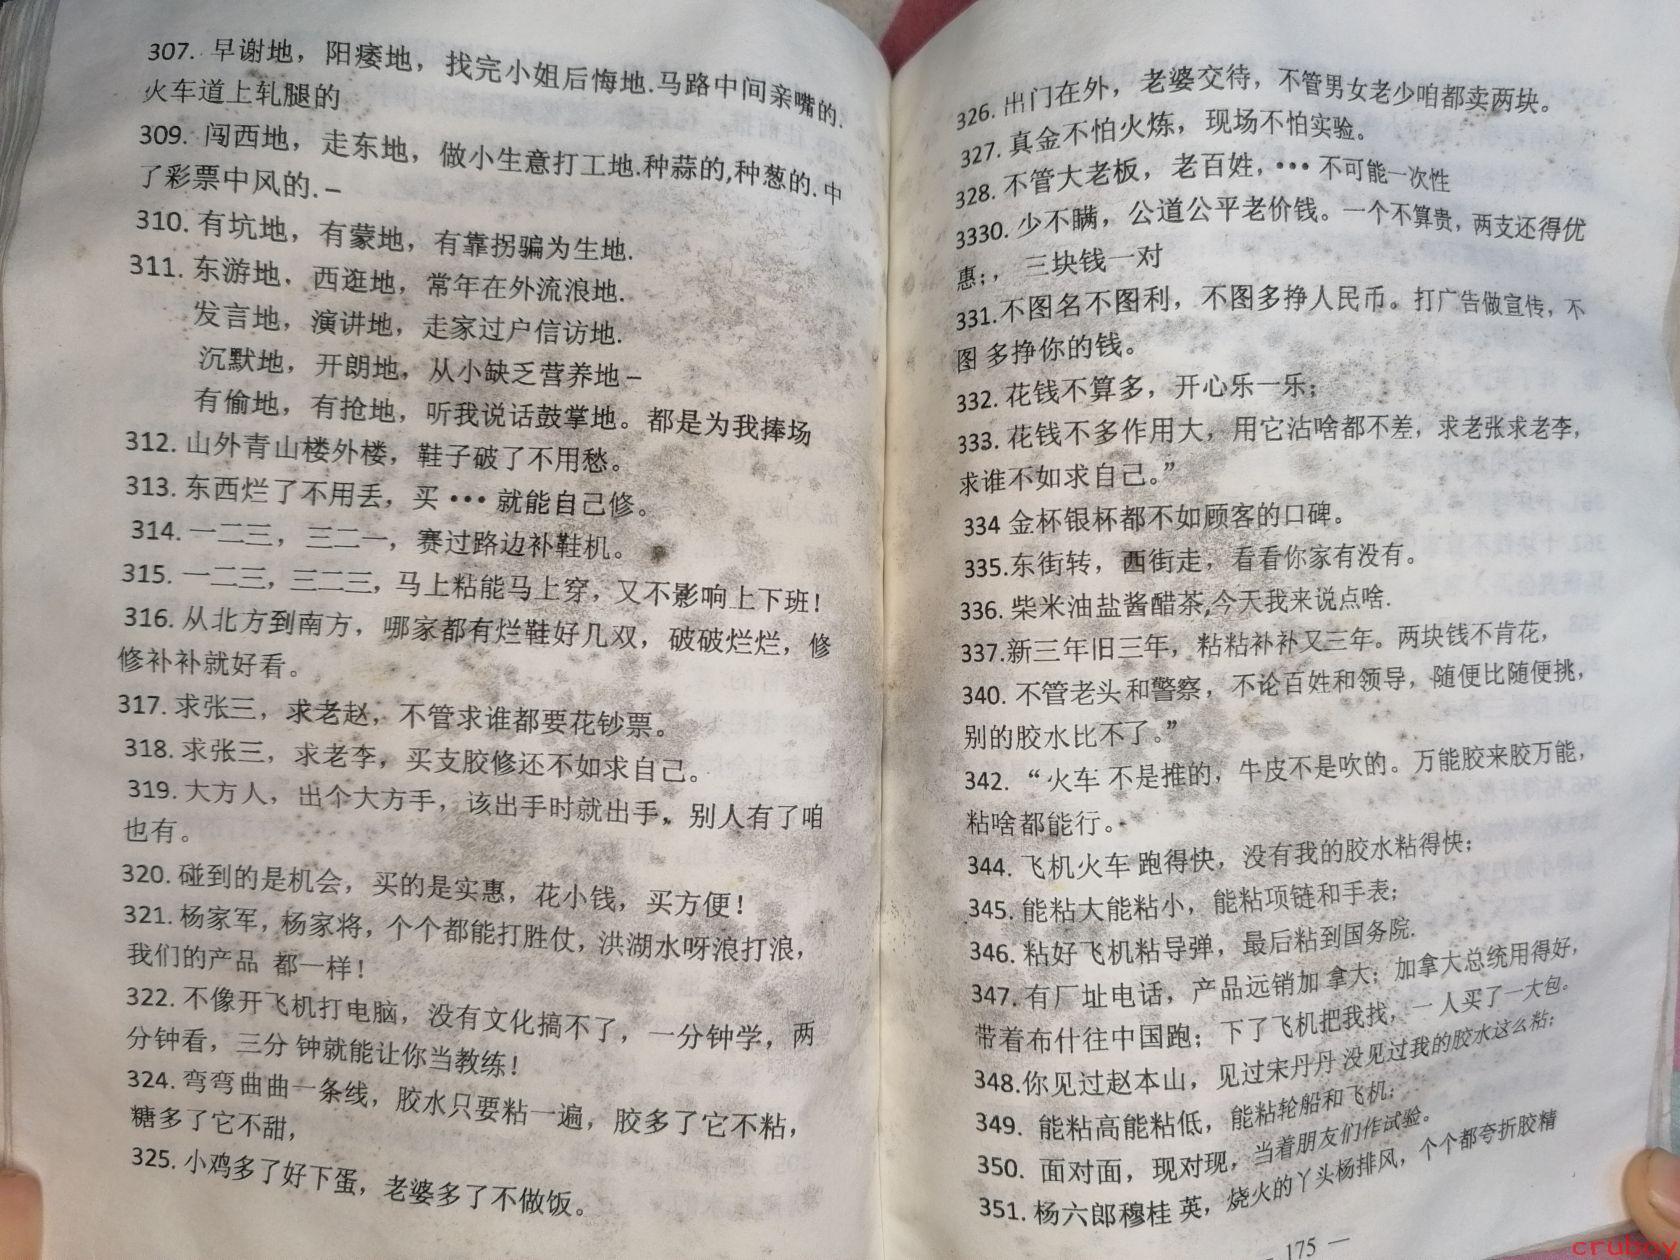 307. 早谢地，阳痿地，找完小姐后悔地.马路中间亲嘴的.
火车道上轧腿的
309. 闯西地，走东地，做小生意打工地.种蒜的,种葱的.中
了彩票中风的.–
310. 有坑地，有蒙地，有靠拐骗为生地.
311. 东游地，西逛地，常年在外流浪地.
发言地，演讲地，走家过户信访地.
沉默地，开朗地，从小缺乏营养地–
有偷地，有抢地，听我说话鼓掌地。都是为我捧场
312. 山外青山楼外楼，鞋子破了不用愁。
313. 东西烂了不用丢，买 ••• 就能自己修。
314. 一二三，三二一，赛过路边补鞋机。
315. 一二三，三二三，马上粘能马上穿，又不影响上下班！
316. 从北方到南方，哪家都有烂鞋好几双，破破烂烂，修
修补补就好看。
317. 求张三，求老赵，不管求谁都要花钞票。
318. 求张三，求老李，买支胶修还不如求自己。
319. 大方人，出个大方手，该出手时就出手，别人有了咱
也有。
320. 碰到的是机会，买的是实惠，花小钱，买方便！
321. 杨家军，杨家将，个个都能打胜仗，洪湖水呀浪打浪，
我们的产品 都一样！
322. 不像开飞机打电脑，没有文化搞不了，一分钟学，两
分钟看，三分 钟就能让你当教练！
324. 弯弯曲曲一条线，胶水只要粘一遍，胶多了它不粘，
糖多了它不甜，
325. 小鸡多了好下蛋，老婆多了不做饭。
326. 出门在外，老婆交待，不管男女老少咱都卖两块。
327. 真金不怕火炼，现场不怕实验。
328. 不管大老板，老百姓，••• 不可能一次性
3330. 少不瞒，公道公平老价钱。一个不算贵，两支还得优
惠；，三块钱一对
331.不图名不图利，不图多挣人民币。打广告做宣传，不
图 多挣你的钱。
332. 花钱不算多，开心乐一乐；
333. 花钱不多作用大，用它沾啥都不差，求老张求老李，
求谁不如求自己。”
334 金杯银杯都不如顾客的口碑。
335.东街转，西街走，看看你家有没有。
336. 柴米油盐酱醋茶,今天我来说点啥.
337.新三年旧三年，粘粘补补又三年。两块钱不肯花，
340. 不管老头和警察，不论百姓和领导，随便比随便挑，
别的胶水比不了。”
342. “火车 不是推的，牛皮不是吹的。万能胶来胶万能，
粘啥都能行。
344. 飞机火车 跑得快，没有我的胶水粘得快；
345. 能粘大能粘小，能粘项链和手表；
346. 粘好飞机粘导弹，最后粘到国务院.
347. 有厂址电话，产品远销加 拿大；加拿大总统用得好，
带着布什往中国跑；下了飞机把我找，一 人买了一大包。
348.你见过赵本山，见过宋丹丹 没见过我的胶水这么粘；
349. 能粘高能粘低，能粘轮船和飞机；
350. 面对面，现对现，当着朋友们作试验。
351. 杨六郎穆桂 英，烧火的丫头杨排风，个个都夸折胶精
— 175 —
cruboy